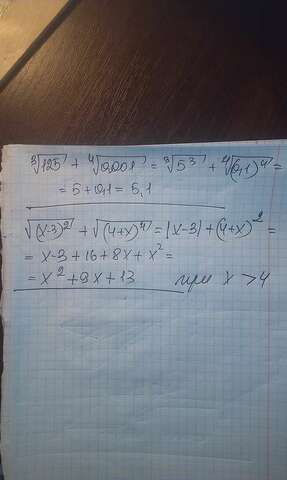 ∛125 + ∜0,001 = ∛5³ + ∜(0,1)⁴ =
= 5 + 0,1 = 5,1
√(x-3)² + √(4+x)⁴ = |x-3| + (4+x)² =
= x-3+16+8x+x² =
= x²+9x+13 при x > 4